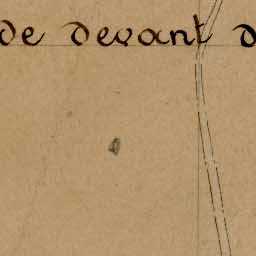 de devant d